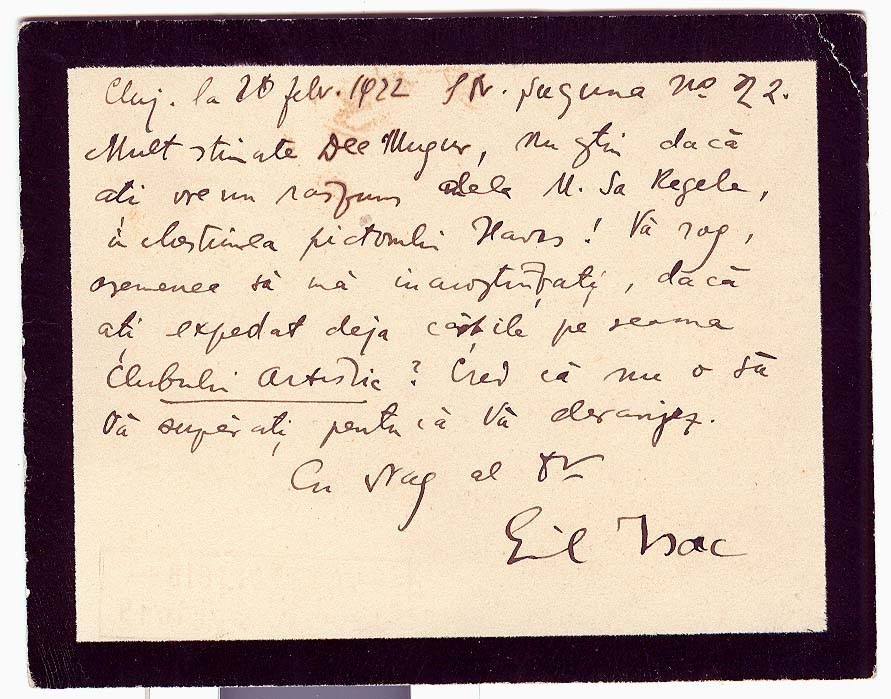 Cluj. la 20 febr. 1922 Str. Șaguna no 22.
Mult stimate Dle Mugur, nu știu dacă
ați vreun răspuns dela M. Sa Regele,
în chestiunea pictorului! Vă rog,
asemenea să mă incunoștințați, dacă
ați expedat deja cărțile pe seama
Clubului Artistic? Cred că nu o să
Vă supărați pentru că Vă deranjez.
Cu drag al Dv
Emil Isac